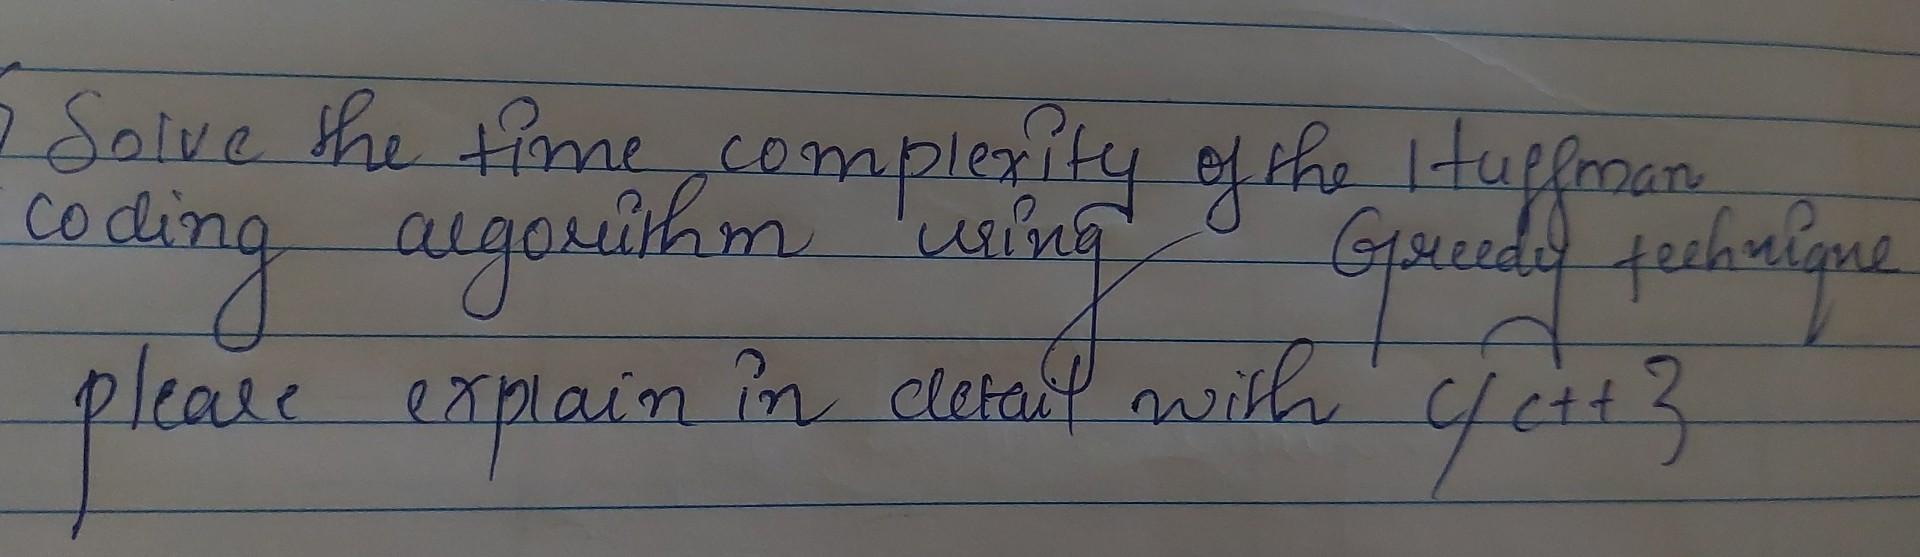 Solve the time complexity of the Huffman
coding algorithm using Greedy technique
please explain in detail with c/c++ }